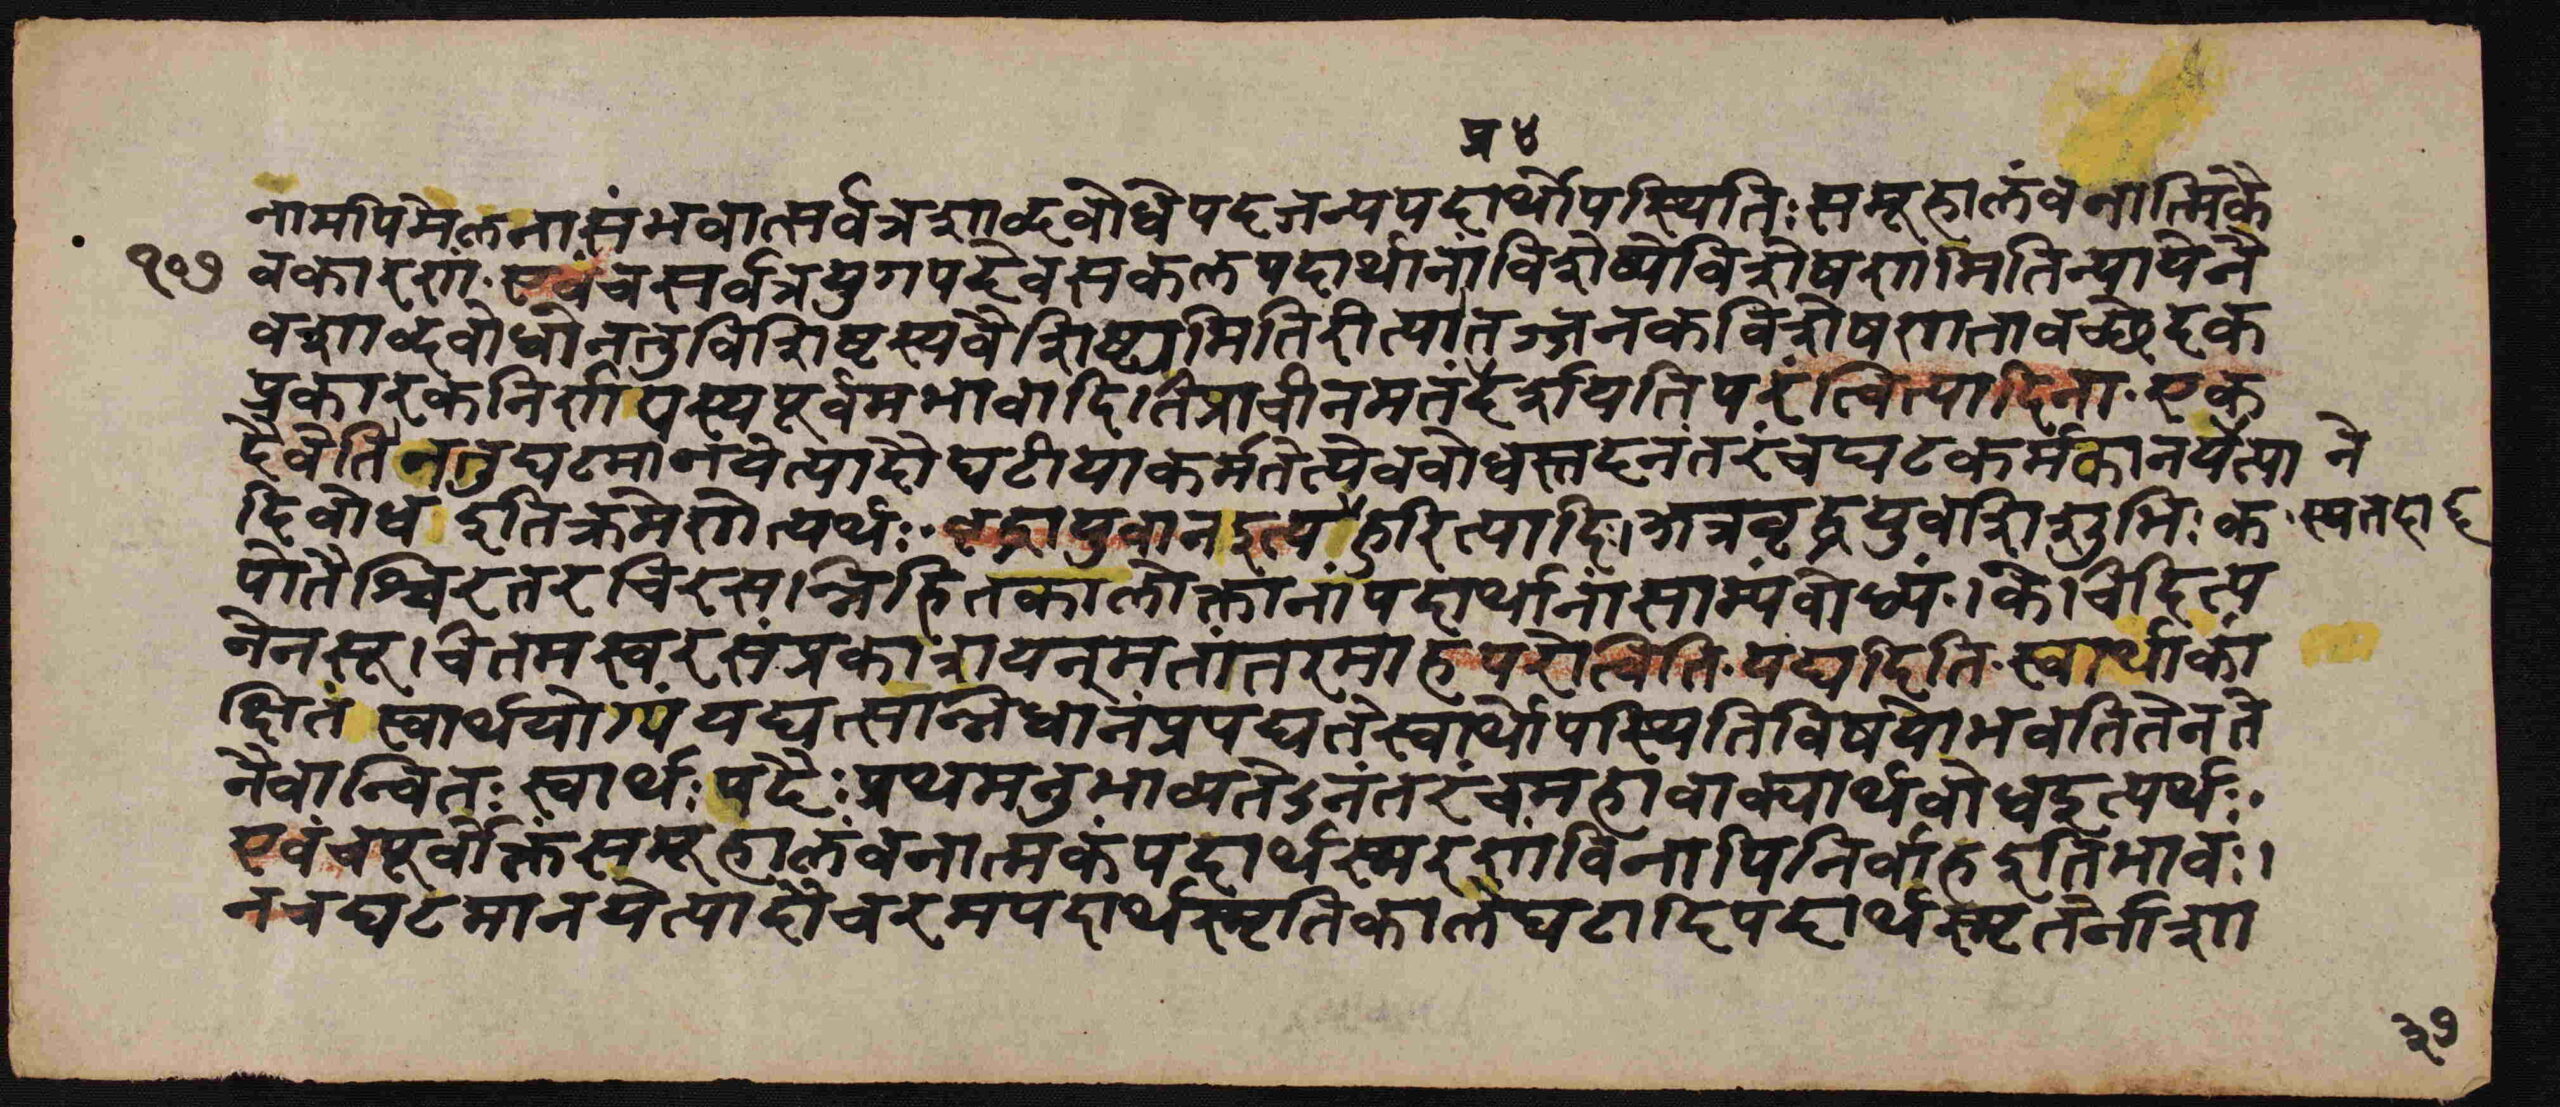 प्र ४
नामपिमेलनासंभवात्सर्वत्रशाब्दबोधेपदजन्यपदार्थोपस्थितिः समूहालंबनात्मिकै
१०७
वकारणं एवंचसर्वत्रयुगपदेवसकलपदार्थानांविशेष्येविशेषणमितिन्यायेनै
वशाब्दबोधोनतुविशिष्टस्यवैशिष्ट्यमितिरीत्यातज्जनकविशेषणतावच्छेदक
प्रकारकनिर्णयस्यपूर्वमभावादितिप्राचीनमतंदर्शयतिपरंत्वित्यादिना एक
दैवेति ननुघटमानयेत्यादौघटीयाकर्मतेत्येवबोधस्तदनंतरंचघटकर्मकानयेत्या ने
दिबोध इतिक्रमेणेत्यर्थः वृद्धायुवानइत्याहुरित्यादि। अत्रवृद्धयुवशिशुभिः क स्यतदार्ढ
पोतैश्चिरतरचिरसन्निहितकालोक्तानांपदार्थानांसाम्यंबोध्यं। केचिदित्य
नेनसूचितमस्वरसंप्रकाशयन्मतांतरमाहपरेत्विति यद्यदिति स्वार्थाकां
क्षितं स्वार्थयोग्यं यद्यत्सान्निधानंप्रपद्यतेस्वार्थोपस्थितिविषयोभवतितेनते
नैवान्वितः स्वार्थः पदैः प्रथममनुभाव्यतेऽनंतरंचमहावाक्यार्थबोधइत्यर्थः
एवंचपूर्वोक्तंसमूहालंबनात्मकंपदार्थस्मरणंविनापिनिर्वाहइतिभावः।
नचघटमानयेत्यादौचरमपदार्थस्मृतिकालेघटादिपदार्थस्मृतेर्नाशा
३७